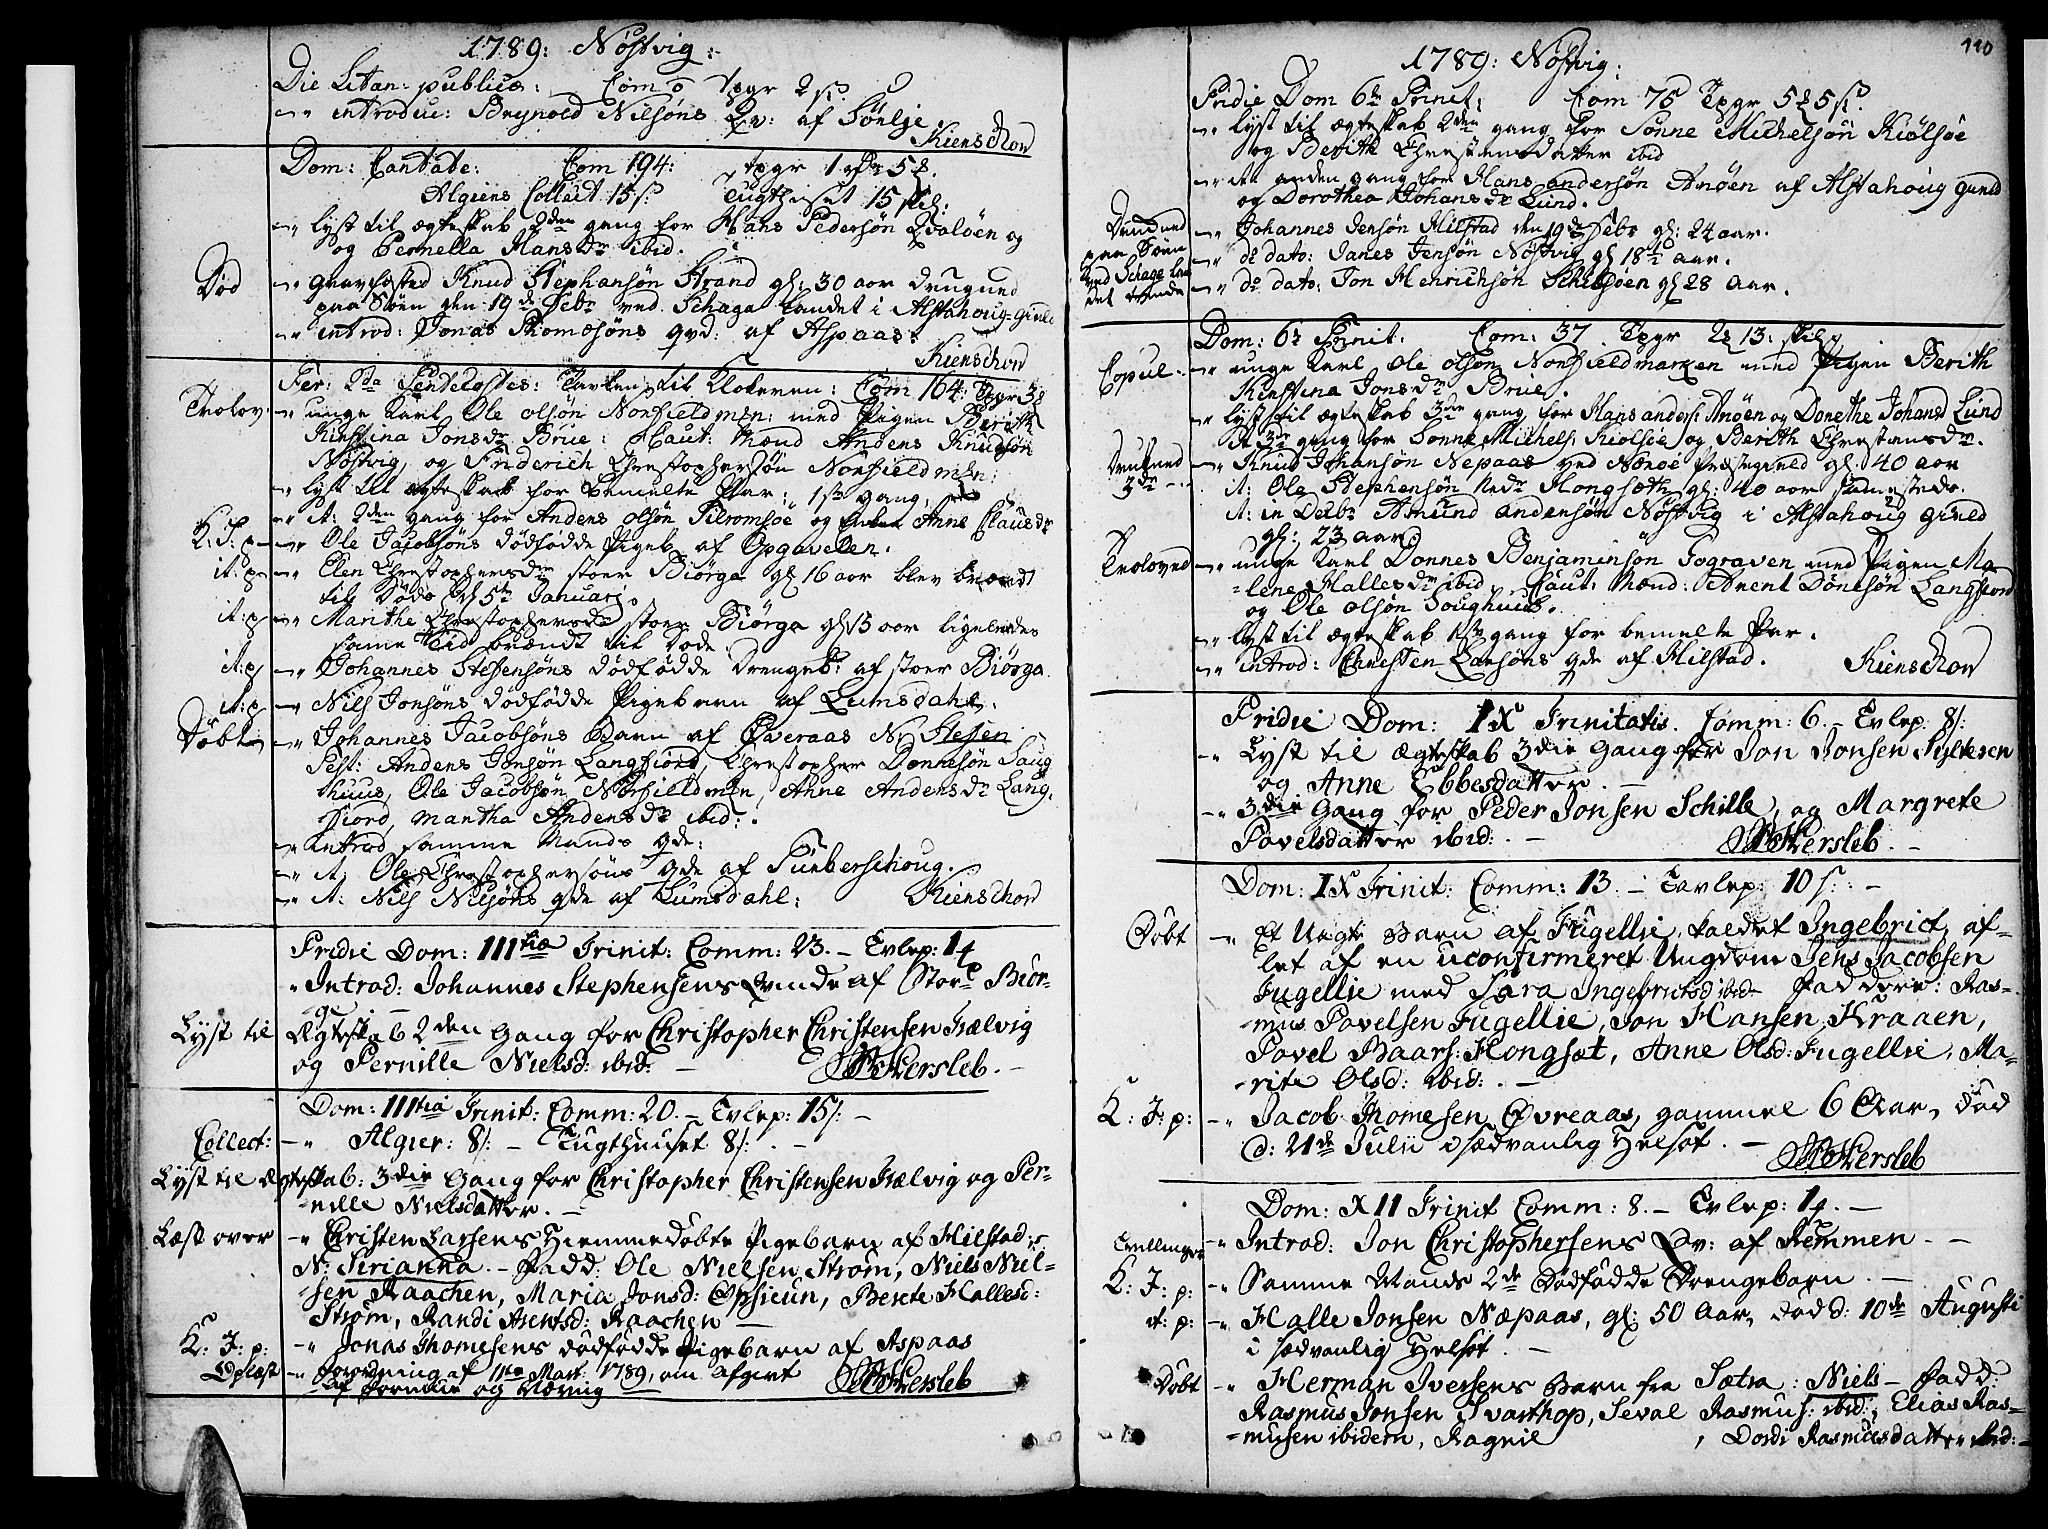 1789: Nøstvig:
Die Litan: publica: Com 0 Tpgr 2 s.
introduc: Brynold Nilsøns Qv: af Sønlje
Kienschov
Dom: Cantate: Com 194: Tpgr 1 5
Algiens Collect 15 s. Tugthuset 15 skil:
lyst til ægteskab 2den gang for Hans Pedersøn Qvaløen og
og Pernella Hansdr ibid.
Død
gravfæsted Knud Stephansøn Strand gl: 30 aar druguned
paa Søen den 19de Febr ved Schaga landet i Alstahoug gield
introd: Jonas Thomosøns qvd: af Aspaas.
Kienschov
Fer: 2da Pentecostes: Tavlen til Klokeren: Com 164: Tpgr 3
Trolov
unge karl Ole olsøn Norfieldmln: med Pigen Berith
Kirstina Jonsdr Brue: Caut: Mænd Anders Knudsøn
Nøstvig, og Friderich Chrestophersøn Norfieldmln:
lyst til ægteskab for bemelte Par: 1ste gang.
it: 2den gang for Anders olsøn Tilromsøe og Anne Clausdr
K: J: p
Ole Jacobsøns dødfødde Pigeb: af Opgavelen.
it: p
Elen Chrestophersdr stoer Biørga gl 16 aar blev brændt
til Døde d 5te Januarj.
it: p
Marithe Chrestophersdr stoer Biørga gl 13 aar ligeledes
same tid brændt til døde
it: p
Johannes Steffensøns dødfødde Drengeb: af stoer Biørga.
it: p
Nils Jonsøns dødfødde Pigebarn af Lumsdahl.
Døbt
Johannes Jacobsøns Barn af Øveraas N: Steffen
Test: Anders Jonsøn Langfiord, Chrestopher Donnesøn Saug
huus, Ole Jacobsøn Norfieldmln, Anne Andersdr Lang,
fiord, Maritha Andersdr ibid:.
introd samme Mands qde:
it: Ole Chrestophersøns qde af Tunberschoug.
it: Nils Nilsøns qde af Lumsdahl:
Kienschov
Pridie Dom: IIItia Trinit: Comm: 23. – Tvlep: 14
Introd: Johannes Stephensens Qvinde af Store Biør-
ge –
Lyst til Ægteskab 2den Gang for Christopher Christensen Træelvig
og Pernille Nielsd: ibid: –
Hersleb.
Dom: IIItia Trinit: Comm: 20. – Tvlep: 15/: –
Collect: – Algier: 8/: – Tugthuuset 8/: –
Lyst til Ægteskab: 3die Gang for Christopher Christensen Træelvig og Per-
nille Nielsdatter. –
Læst over
Christen Larsens Hiemmedøbte Pigebarn af Hilstad:
N: Sirianna. – Fadd: Ole Nielsen Strøm, Niels Niel-
sen Raachen, Maria Jonsd: Opsieun, Berete Hallesd:
Strøm, Randi Arentsd: Raachen –
K: J: p:
Jonas Thomesens dødfødde Pigebarn af Aspaas
Oplæst
Forordning af 11te Mart: 1789, om Afgivt
af Formue og Næring
Hersleb
110
1789: Nøstvig:
Pridie Dom 6te Trinit: Com 75 Tpgr 5 5 s.
lyst til ægteskab 2den gang for Sønne Michelsøn Kiølsøe
og Berith Chrestensdatter ibid
it: anden gang for Hans Andersøn Anøen af Alstahoug gield
og Dorothea Johansdr Lund.
Druknet
paa Søen
ved Schage Lan
det trende
Johannes Jensøn Hilstad den 19de Febr gl: 24 aar.
de dato: Janes Jensøn Nøstvig gl 18½ aar.
de dato: Jon Henrichsøn Schibsøen gl 28 Aar.
Dom: 6te Trinit: Com: 37 Tpgr 2 13: skil:
Copul:
unge karl Ole olsøn Norfieldmarken med Pigen Berith
Kirstina Jonsdr Brue.
lyst til ægteskab 3die gang for Hans anders: Anøen og Dorethe Johansd Lund
it 3die gang for Sønne Michels: Kiølsøe og Berith Chrestansdr.
Druknet
3de
Knud Johansøn Nepaas ved Nærøe Præstegield gl. 40 aar
it: Ole Stephensøn Nedr Hongsæth gl: 40 aar samestede.
it: in Decbr Amund andersøn Nøstvig i Alstahoug gield
gl: 23 aar.
Trolovet
unge karl Donnes Benjaminsøn Fograven med Pigen Ma
lene Hallesdr ibid: Caut: Mænd: Arent Dønesøn Langfiord
og Ole olsøn Soughuus.
lyst til ægteskab 1ste gang for bemelte Par.
introd: Chresten Larsøns qde af Hilstad.
Kienschov
Pridie Dom: IX Trinitatis. Comm: 6. – Tvlep. 8/:
Lyst til Ægteskab 3die Gang for Jon Jonsen Sylteren
og Anne Ebbesdatter. –
3die Gang for Peder Jonsen Schille, og Margrete
Povelsdatter ibid: –
Hersleb. –
Dom: IX Trinit: Comm: 13. – Tavlep: 10 s: –
Døbt
Et Uægte Barn af Fugellie, kaldet Ingebrict, af-
let af en uconfirmeret Ungdom Jens Jacobsen
Fugellie med Sara Ingebrictsd ibid. Faddere: Ras-
mus Povelsen Fugellie, Jon Hansen Kraaen,
Povel Baars: Hongsæt, Anne Olsd: Fugellie, Ma-
rite Olsd: ibid: –
K: J: p:
Jacob Thomesen Øvreaas, gammel 6 Aar, død
d: 21de Julii i sædvanlig Helsot. –
Hersleb
Dom: XII Trinit Comm: 8. – Tvlep: 14. –
Tvillinger
Introd: Jon Christophersens Qv: af Remmen. –
K: J: p:
Samme Mands 2de Dødfødde Drengebarn. –
it: p:
Halle Jonsen Næpaas, gl: 50 Aar, død d: 10de Augusti
i sædvanlig Helsot. –
Døbt
Herman Iversens Barn fra Sætra: Niels – Fadd:
Rasmus Jonsen Svarthop, Seval Rasmus: ibid:, Elias Ras-
musen ibidem, Ragnil , Dordi Rasmusdatter ibid: –